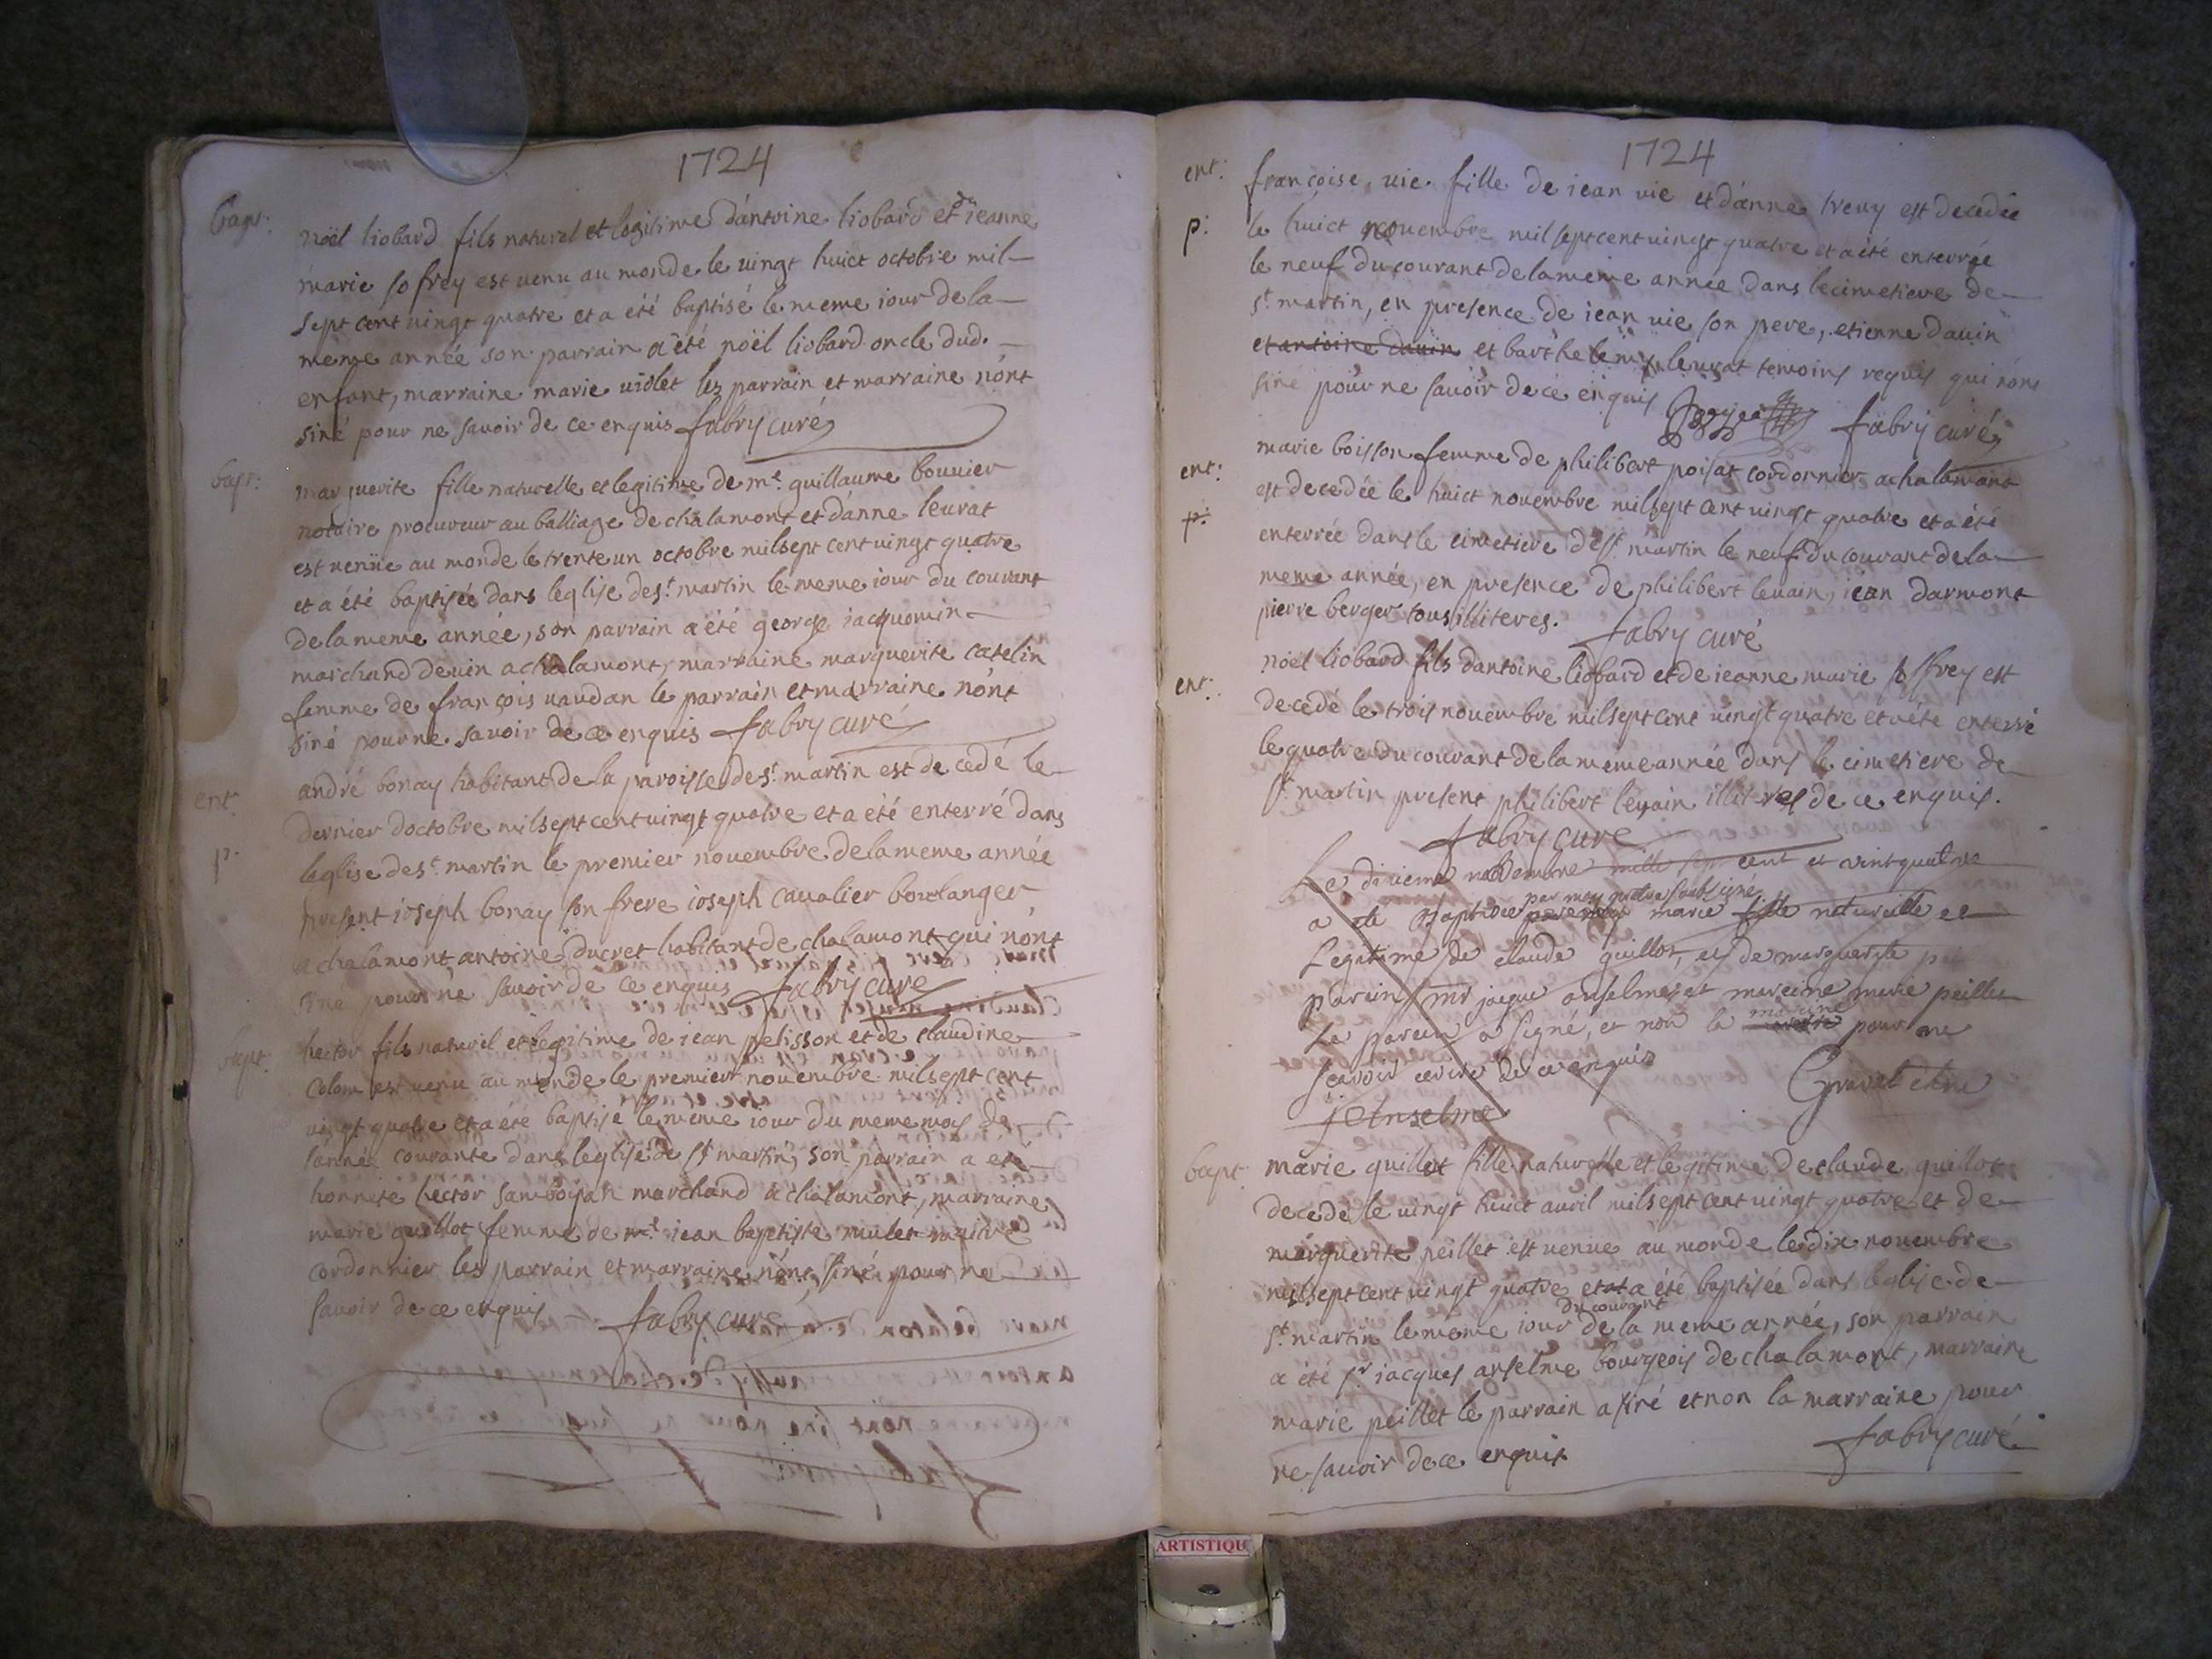 1724
bapt:
noël liobard fils naturel et legitime d'antoine liobard et d'ieanne
marie sofrey est venu au monde le vingt huict octobre mil
sept cent vingt quatre et a été baptisé le meme iour de la
meme année son parrain a été noël liobard oncle dud.
enfant, marraine marie violet les parrain et marraine n'ont
siné pour ne savoir de ce enquis fabry curé
bapt:
marguerite fille naturelle et legitime de me. guillaume bouvier
notaire procureur au balliage de chalamont et d'anne leurat
est venüe au monde le trente un octobre mil sept cent vingt quatre
et a été baptisée dans leglise de st. martin le meme iour du courant
de la meme année, son parrain a été george iacquemin
marchand de vin a chalamont, marraine marguerite catelin
femme de françois vaudan le parrain et marraine n'ont
siné pour ne savoir de ce enquis fabry curé
ent.
andré bonay habitant de la paroisse de st. martin est decedé le
dernier d'octobre mil sept cent vingt quatre et a été enterré dans
p.
leglise de st. martin le premier novembre de la meme année
present ioseph bonay son frere ioseph cavalier boulanger
a chalamont antoine ducret habitant de chalamont qui n'ont
siné pour ne savoir de ce enquis fabry curé
bapt.
hector fils naturel et legitime de iean pelisson et de claudine
colom est venu au monde le premier novembre mil sept cent
vingt quatre et a été baptisé le meme iour du meme mois de
l'année courante dans leglise de st martin, son parrain a été
honnete hector marchand a chalamont, marraine
marie guillot femme de me. iean baptiste mulet maitre
cordonnier les parrain et marraine n'ont siné pour ne
savoir de ce enquis fabry curé
1724
ent:
françoise vie fille de iean vie et d'anne treuy est decedée
p:
le huict novembre mil sept cent vingt quatre et a été enterrée
le neuf du courant de la meme année dans le cimetiere de
st. martin, en presence de iean vie son pere, etienne davin
et antoine davin et barthelemy leurat temoins requis qui n'ont
siné pour ne savoir de ce enquis fabry curé
ent:
marie boisson femme de philibert poisat cordonnier a chalamont
est decedée le huict novembre mil sept cent vingt quatre et a été
p:
enterrée dans le cimetiere de st. martin le neuf du courant de la
meme année, en presence de philibert levain, iean darmont
pierre berger tous illiteres. fabry curé
ent:
noël liobard fils d'antoine liobard et de ieanne marie soffrey est
decédé le trois novembre mil sept cent vingt quatre et a été enterré
le quatre du courant de la meme année dans le cimetiere de
st. martin present philibert levain illiteres de ce enquis.
fabry curé
Le novembre mille sept cent et vint quatre
par moy soubsigné
a ete baptisée marie fille naturelle et
Legitime de claude guillot, et de marguerite
parain mr jaque anselme, et mareine marie peillet
mareine
Le parein a signé, et non la pour ne
scavoir ecrire de ce enquis
j Anselme
bapt.
marie guillot fille naturelle et legitime de claude guillot
decedé le vingt huict avril mil sept cent vingt quatre et de
marguerite peillet est venüe au monde le dix novembre
mil sept cent vingt quatre et a été baptisée dans leglise de
du courant
st. martin le meme iour de la meme année, son parrain
a été sr iacques anselme bourgeois de chalamont, marraine
marie peillet le parrain a siné et non la marraine pour
ne savoir de ce enquis fabry curé
ARTISTIQU